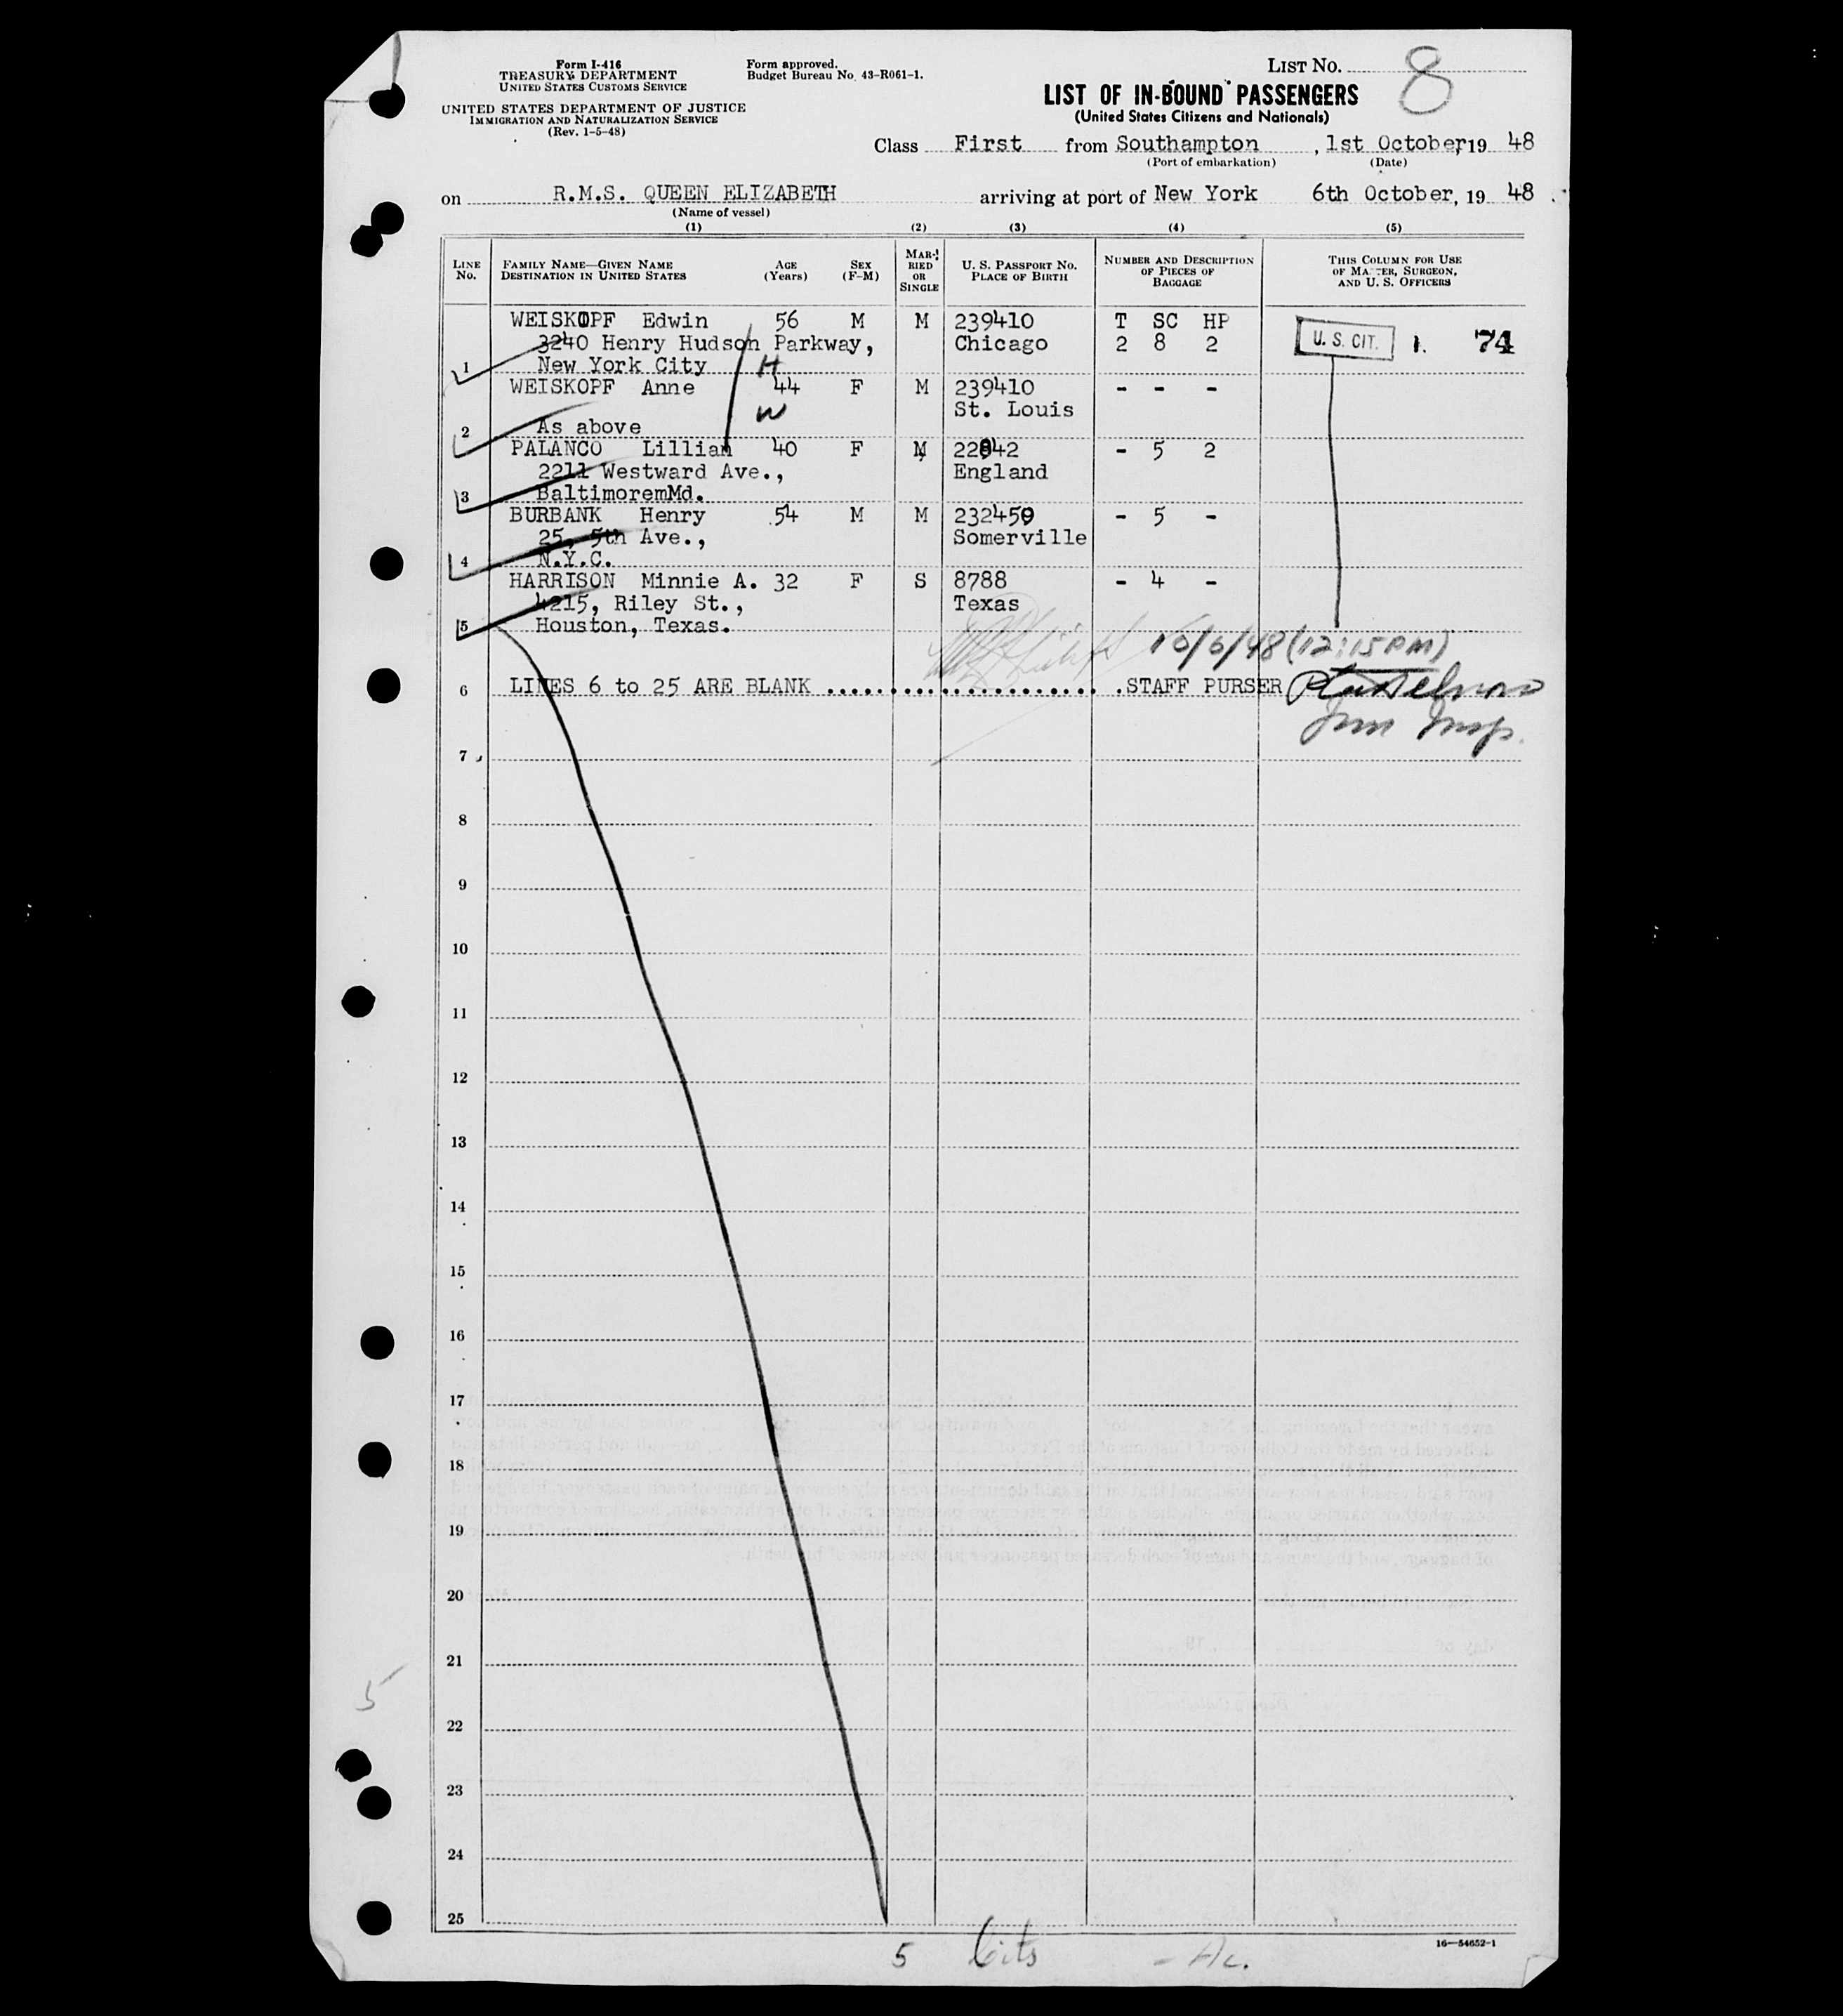 Form I-416
TREASURY DEPARTMENT
UNITED STATES CUSTOMS SERVICE
UNITED STATES DEPARTMENT OF JUSTICE
IMMIGRATION AND NATURALIZATION SERVICE
(Rev. 1-5-48)
Form approved.
Budget Bureau No. 43-R061-1.
LIST No. 8
LIST OF IN-BOUND PASSENGERS
(United States Citizens and Nationals)
Class First from Southampton, 1st October, 19 48
(Port of embarkation) (Date)
on R.M.S. QUEEN ELIZABETH arriving at port of New York 6th October, 19 48
(Name of vessel)
(1) (2) (3) (4) (5)
LINE No. FAMILY NAME—GIVEN NAME DESTINATION IN UNITED STATES AGE (Years) SEX (F-M) MARRIED OR SINGLE U. S. PASSPORT No. PLACE OF BIRTH NUMBER AND DESCRIPTION OF PIECES OF BAGGAGE THIS COLUMN FOR USE OF MASTER, SURGEON, AND U. S. OFFICERS
WEISKOPF Edwin 56 M M 239410 T SC HP
3240 Henry Hudson Parkway, Chicago 2 8 2 U. S. CIT. 1. 74
1 New York City H
WEISKOPF Anne 44 F M 239410 - - -
W St. Louis
2 As above
PALANCO Lillian 40 F M - 5 2
2211 Westward Ave., England
3 BaltimoremMd.
BURBANK Henry 54 M M 232459 - 5 -
25, 5th Ave., Somerville
4 N.Y.C.
HARRISON Minnie A. 32 F S 8788 - 4 -
4215, Riley St., Texas
5 Houston, Texas.
10/6/48 (12:15PM)
6 LINES 6 to 25 ARE BLANK ........................ STAFF PURSER
Imm Insp.
7
8
9
10
11
12
13
14
15
16
17
18
19
20
21
5
22
23
24
25
5 Cits - Ac.
16—54652-1